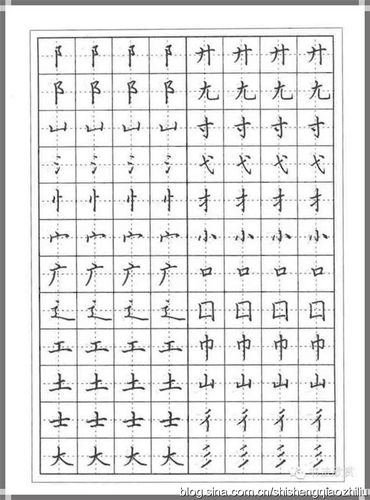 阝 阝 阝 阝 廾 廾 廾 廾
阝 阝 阝 阝 尢 尢 尢 尢
凵 凵 凵 凵 寸 寸 寸 寸
氵 氵 氵 氵 弋 弋 弋 弋
忄 忄 忄 忄 扌 扌 扌 扌
宀 宀 宀 宀 小 小 小 小
广 广 广 广 口 口 口 口
辶 辶 辶 辶 囗 囗 囗 囗
工 工 工 工 巾 巾 巾 巾
土 土 土 土 山 山 山 山
士 士 士 士 彳 彳 彳 彳
大 大 大 大 彡 彡 彡 彡
blog.sina.com.cn/shishengqiaozhiliu